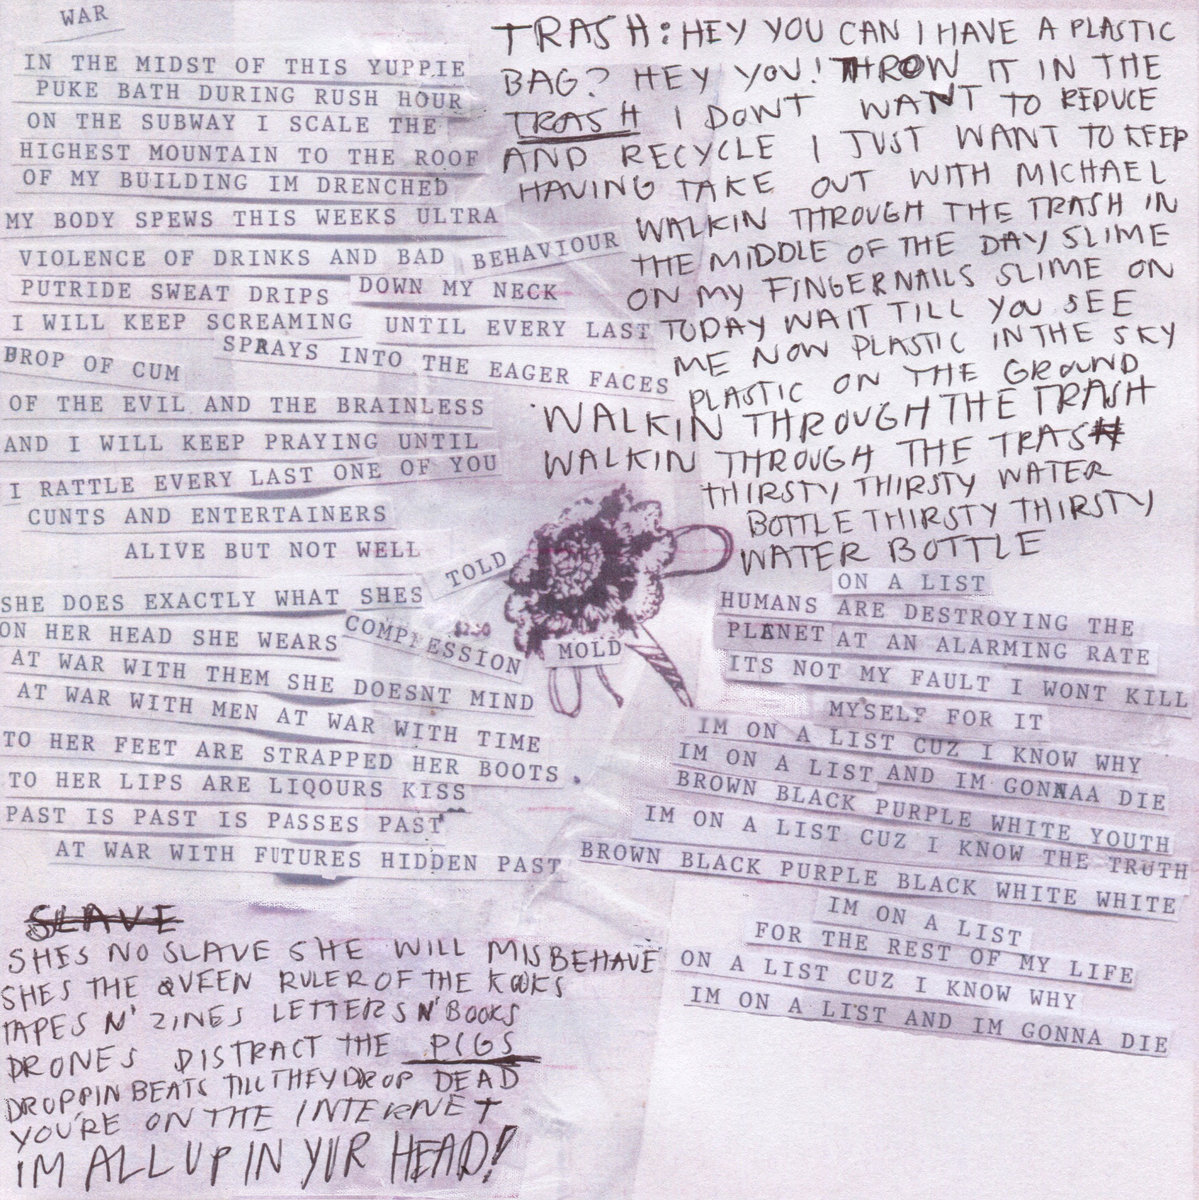 WAR
IN THE MIDST OF THIS YUPPIE
PUKE BATH DURING RUSH HOUR
ON THE SUBWAY I SCALE THE
HIGHEST MOUNTAIN TO THE ROOF
OF MY BUILDING IM DRENCHED
MY BODY SPEWS THIS WEEKS ULTRA
VIOLENCE OF DRINKS AND BAD BEHAVIOUR
PUTRIDE SWEAT DRIPS DOWN MY NECK
I WILL KEEP SCREAMING UNTIL EVERY LAST
DROP OF CUM SPRAYS INTO THE EAGER FACES
OF THE EVIL AND THE BRAINLESS
AND I WILL KEEP PRAYING UNTIL
I RATTLE EVERY LAST ONE OF YOU
CUNTS AND ENTERTAINERS
ALIVE BUT NOT WELL
SHE DOES EXACTLY WHAT SHES TOLD
ON HER HEAD SHE WEARS COMPESSION MOLD
AT WAR WITH THEM SHE DOESNT MIND
AT WAR WITH MEN AT WAR WITH TIME
TO HER FEET ARE STRAPPED HER BOOTS
TO HER LIPS ARE LIQOURS KISS
PAST IS PAST IS PASSES PAST
AT WAR WITH FUTURES HIDDEN PAST
SLAVE
SHES NO SLAVE SHE WILL MISBEHAVE
SHES THE QUEEN RULER OF THE KOOKS
TAPES N' ZINES LETTERS N' BOOKS
DRONES DISTRACT THE PIGS
DROPPIN BEATS TILL THEY DROP DEAD
YOU'RE ON THE INTERNET
IM ALL UP IN YUR HEAD!
TRASH: HEY YOU CAN I HAVE A PLASTIC
BAG? HEY YOU! THROW IT IN THE
TRASH I DONT WANT TO REDUCE
AND RECYCLE I JUST WANT TO KEEP
HAVING TAKE OUT WITH MICHAEL
WALKIN THROUGH THE TRASH IN
THE MIDDLE OF THE DAY SLIME
ON MY FINGERNAILS SLIME ON
TODAY WAIT TILL YOU SEE
ME NOW PLASTIC IN THE SKY
PLASTIC ON THE GROUND
WALKIN THROUGH THE TRASH
WALKIN THROUGH THE TRASH
THIRSTY THIRSTY WATER
BOTTLE THIRSTY THIRSTY
WATER BOTTLE
ON A LIST
HUMANS ARE DESTROYING THE
PLANET AT AN ALARMING RATE
ITS NOT MY FAULT I WONT KILL
MYSELF FOR IT
IM ON A LIST CUZ I KNOW WHY
IM ON A LIST AND IM GONNAA DIE
BROWN BLACK PURPLE WHITE YOUTH
IM ON A LIST CUZ I KNOW THE TRUTH
BROWN BLACK PURPLE BLACK WHITE WHITE
IM ON A LIST
FOR THE REST OF MY LIFE
ON A LIST CUZ I KNOW WHY
IM ON A LIST AND IM GONNA DIE